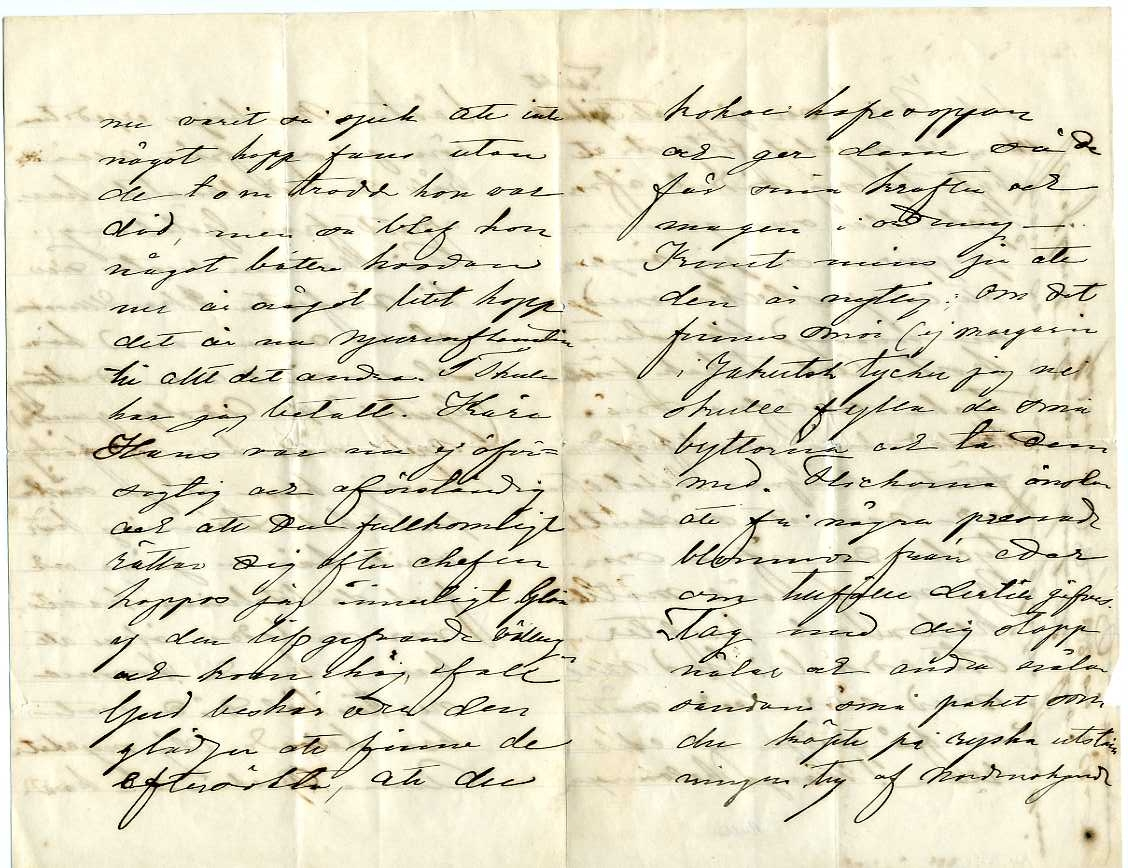 nu varit så sjuk att inte
något hopp fans utan
de tom trodd hon var
död, men så blef hon
något bätre hvadan
nu är något litet hopp
det är nu njurinflamation
till allt det andra. I Thule
har jag betalt. Kära
Hans var nu ej oför=
sigtig och oförståndig
och att Du fullkomligt
rättar dig efter chefen
hoppas jag innerligt Glöm
ej den lifgifvande välling
och kom ihåg ifall
Gud beskär eder den
glädjen att finna de
eftersökta, att du
kokar hafresoppan
och ger dem så de
får sina krafter och
magen i ordning —
Knut mins ju att
den är nyttig; om det
finnes smör (ej margarin
i Jakutsk tycker jag ni
skulle fylla de små
byttorna och ta dem
med. Flickorna önskar
att få några pressade
blommor från eder
om tillfälle dertill gifves.
Tag med dig stopp
nålar och andra nålar
sådana små paket som
du köpte på ryska utstäl
ningen tyg af Nordenskjöld